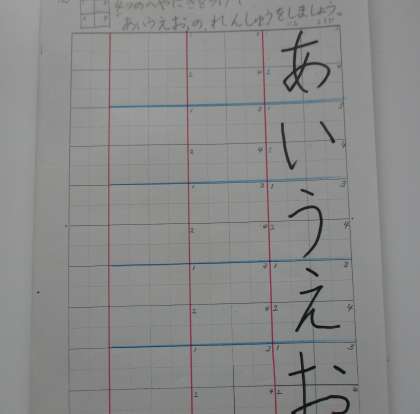 4つのへやにきをつけて
あいうえお、の、れんしゅうをしましょう。
あ
い
う
え
お